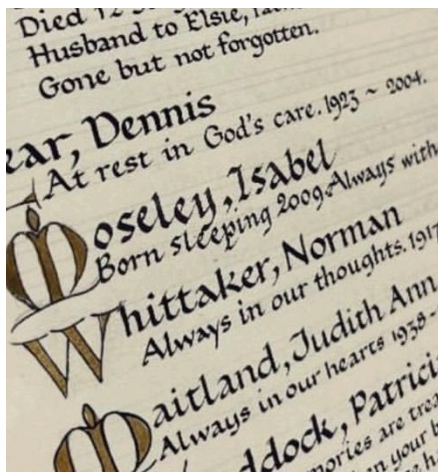 Died 12
Husband to Elsie,
Gone but not forgotten.
ear, Dennis
At rest in God's care. 1923 ~ 2004.
Moseley, Isabel
Born sleeping 2009. Always with
Whittaker, Norman
Always in our thoughts. 1917
Maitland, Judith Ann
Always in our hearts 1938 -
ddock, Patrici
ories are trea
n your b